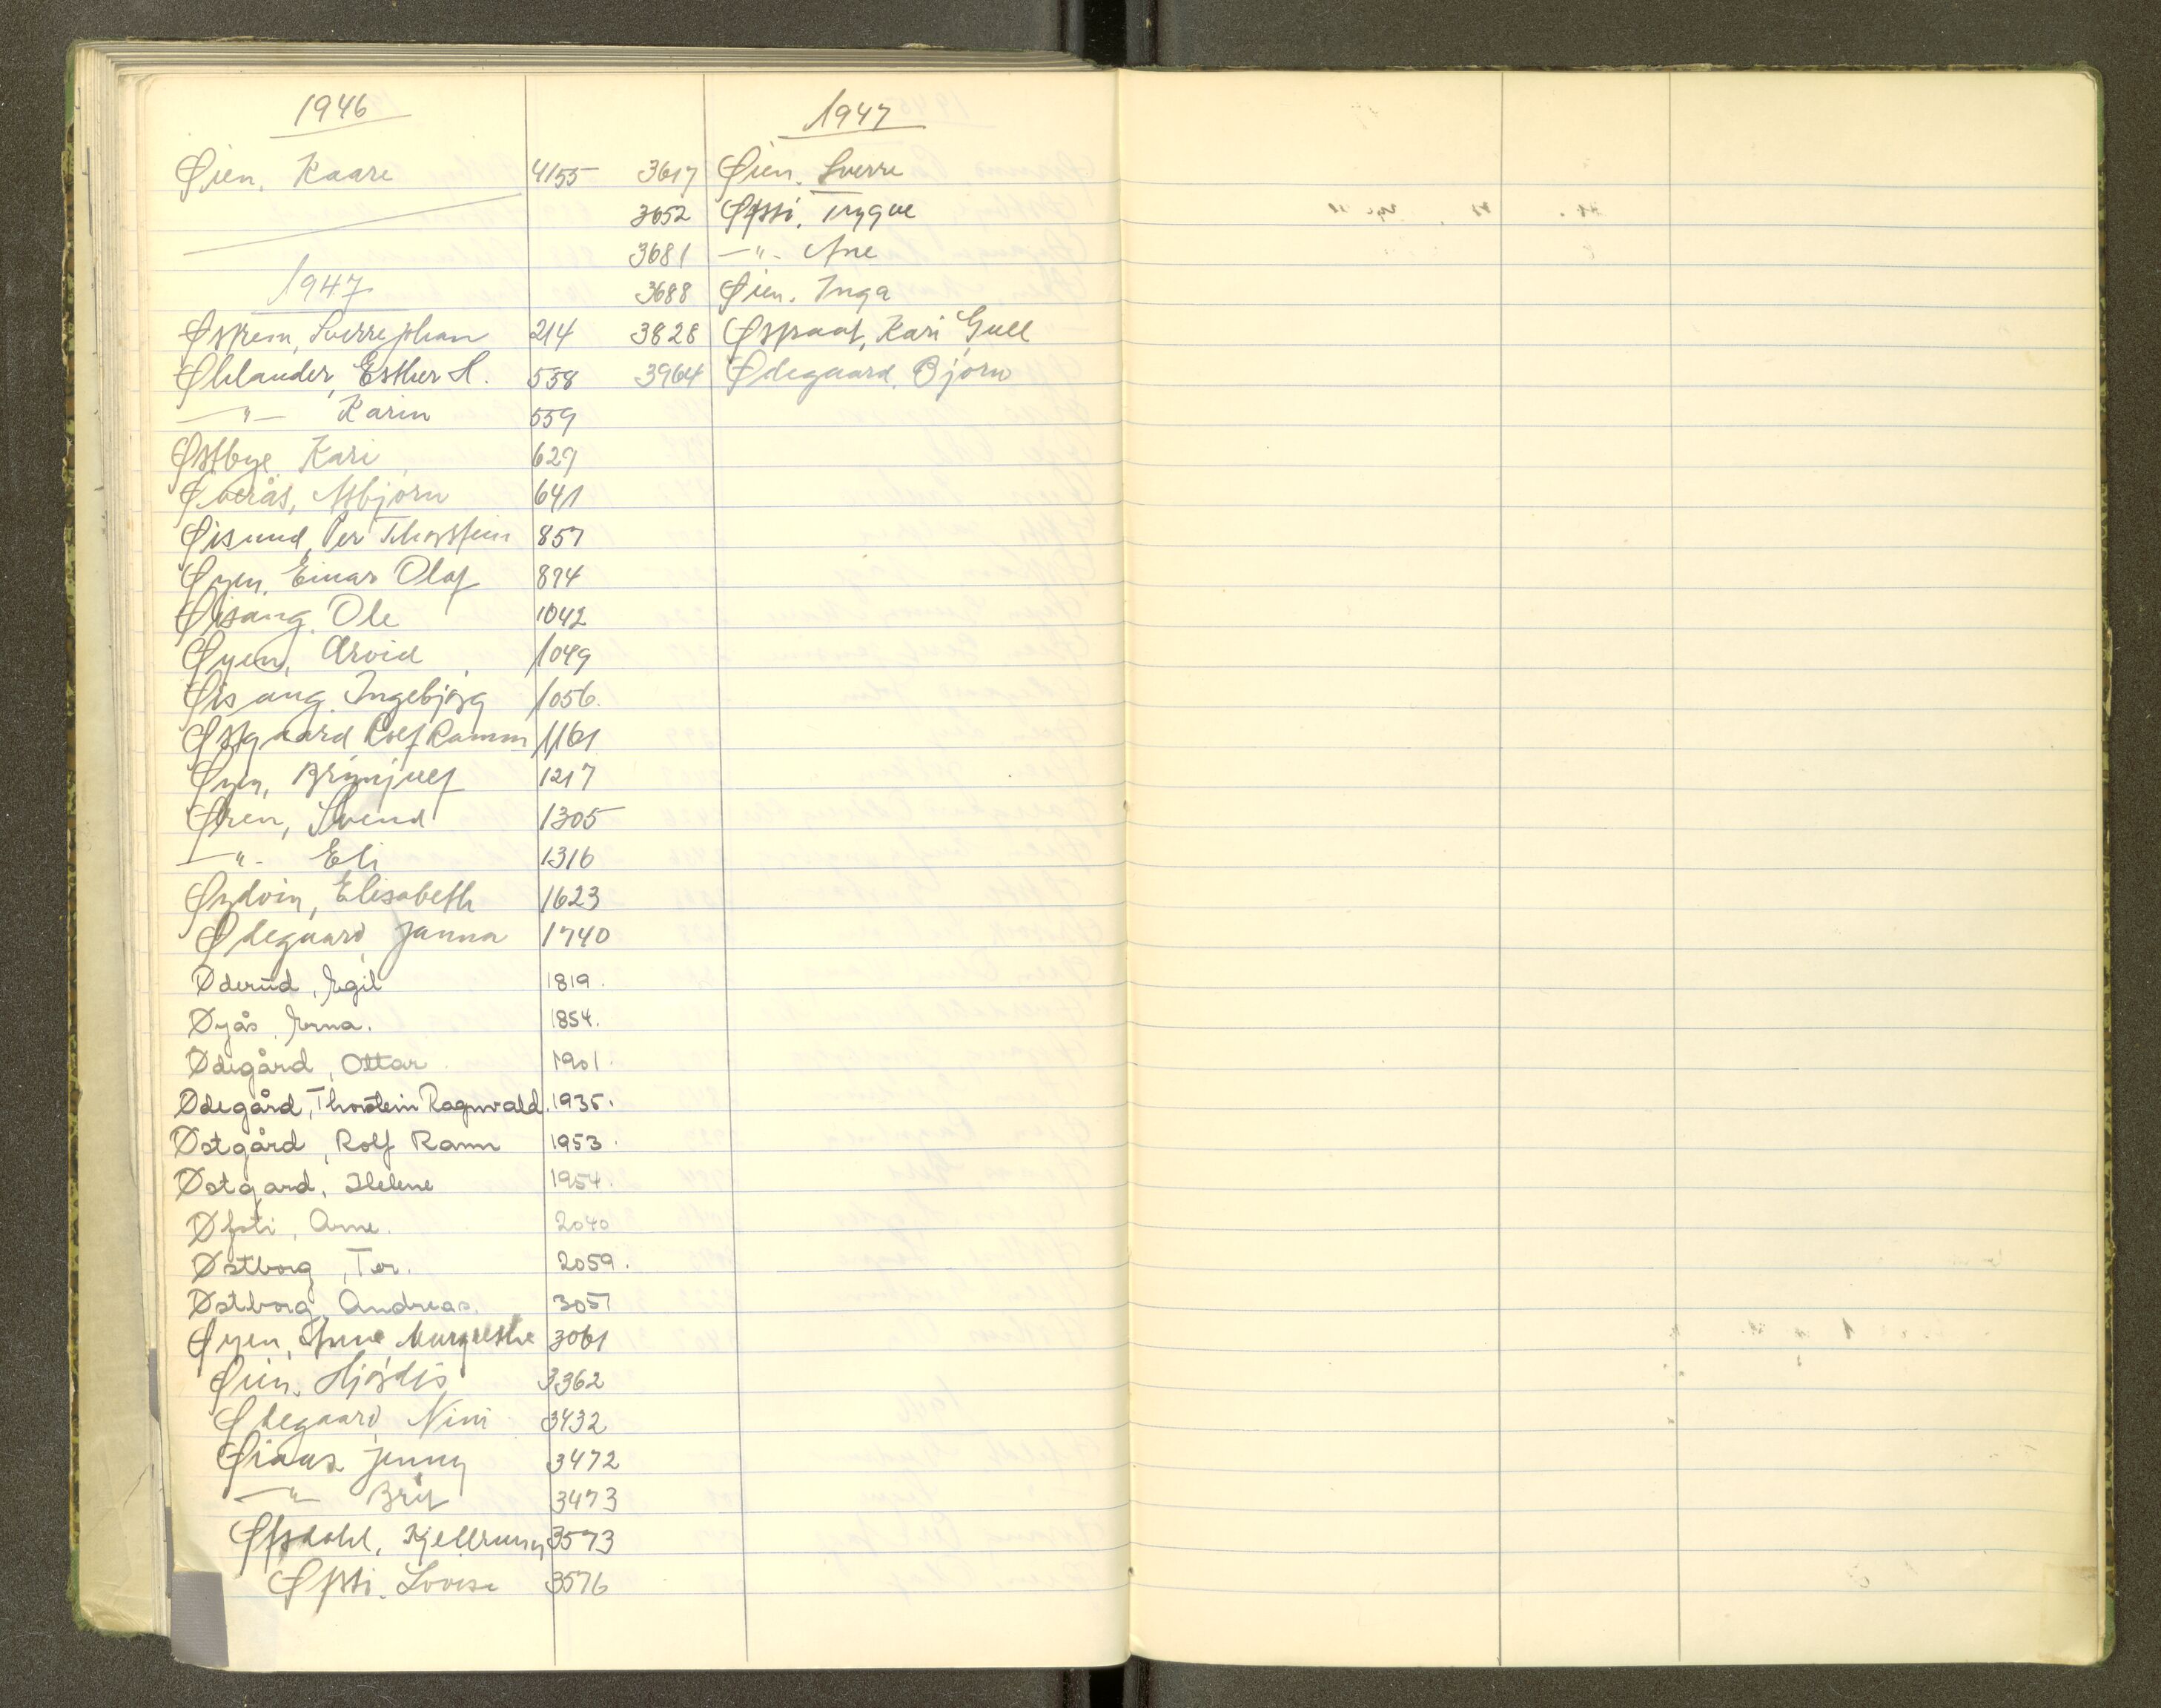 1946
Øien, Kaare 4155
1947
Øskem, Sverre Johan 214
Øhlander, Esther H. 558
—"— Karin 559
Østbye, Kari 629
Øverås, Asbjørn 641
Øisund, Per Thorstein 857
Øyen, Einar Olaf 874
Øisang, Ole 1042
Øyen, Arvid 1049
Øisang, Ingebjørg 1056.
Østgaard Rolf Ramm 1161
Øyen, Brynjulf 1217
Øren, Svend 1305
—"— Eli 1316
Øydvin, Elisabeth 1623
Ødegaard, Janna 1740
Øderud, Egil 1819.
Øyås, Erna. 1854.
Ødegård, Ottar 1901.
Ødegård, Thorstein Ragnvald. 1935.
Østgård, Rolf Ramm 1953.
Østgard, Helene 1954.
Øfsti, Arne. 2040
Østborg, Tor. 2059.
Østborg, Andreas. 3057
Øyen, Anne Margrethe 3061
Øien, Hjørdis 3362
Ødegaard, Nini 3432
Øiaas Jenny 3472
—"— Brit 3473
Øfsdahl, Kjellrunn 3573
Øfsti. Lovise 3576
1947
3617 Øien. Sverre
3652 Øfsti. Trygve
3681 —"— Ane
3688 Øien. Inga
3828 Østraat, Kari Gull
3964 Ødegaard. Bjørn